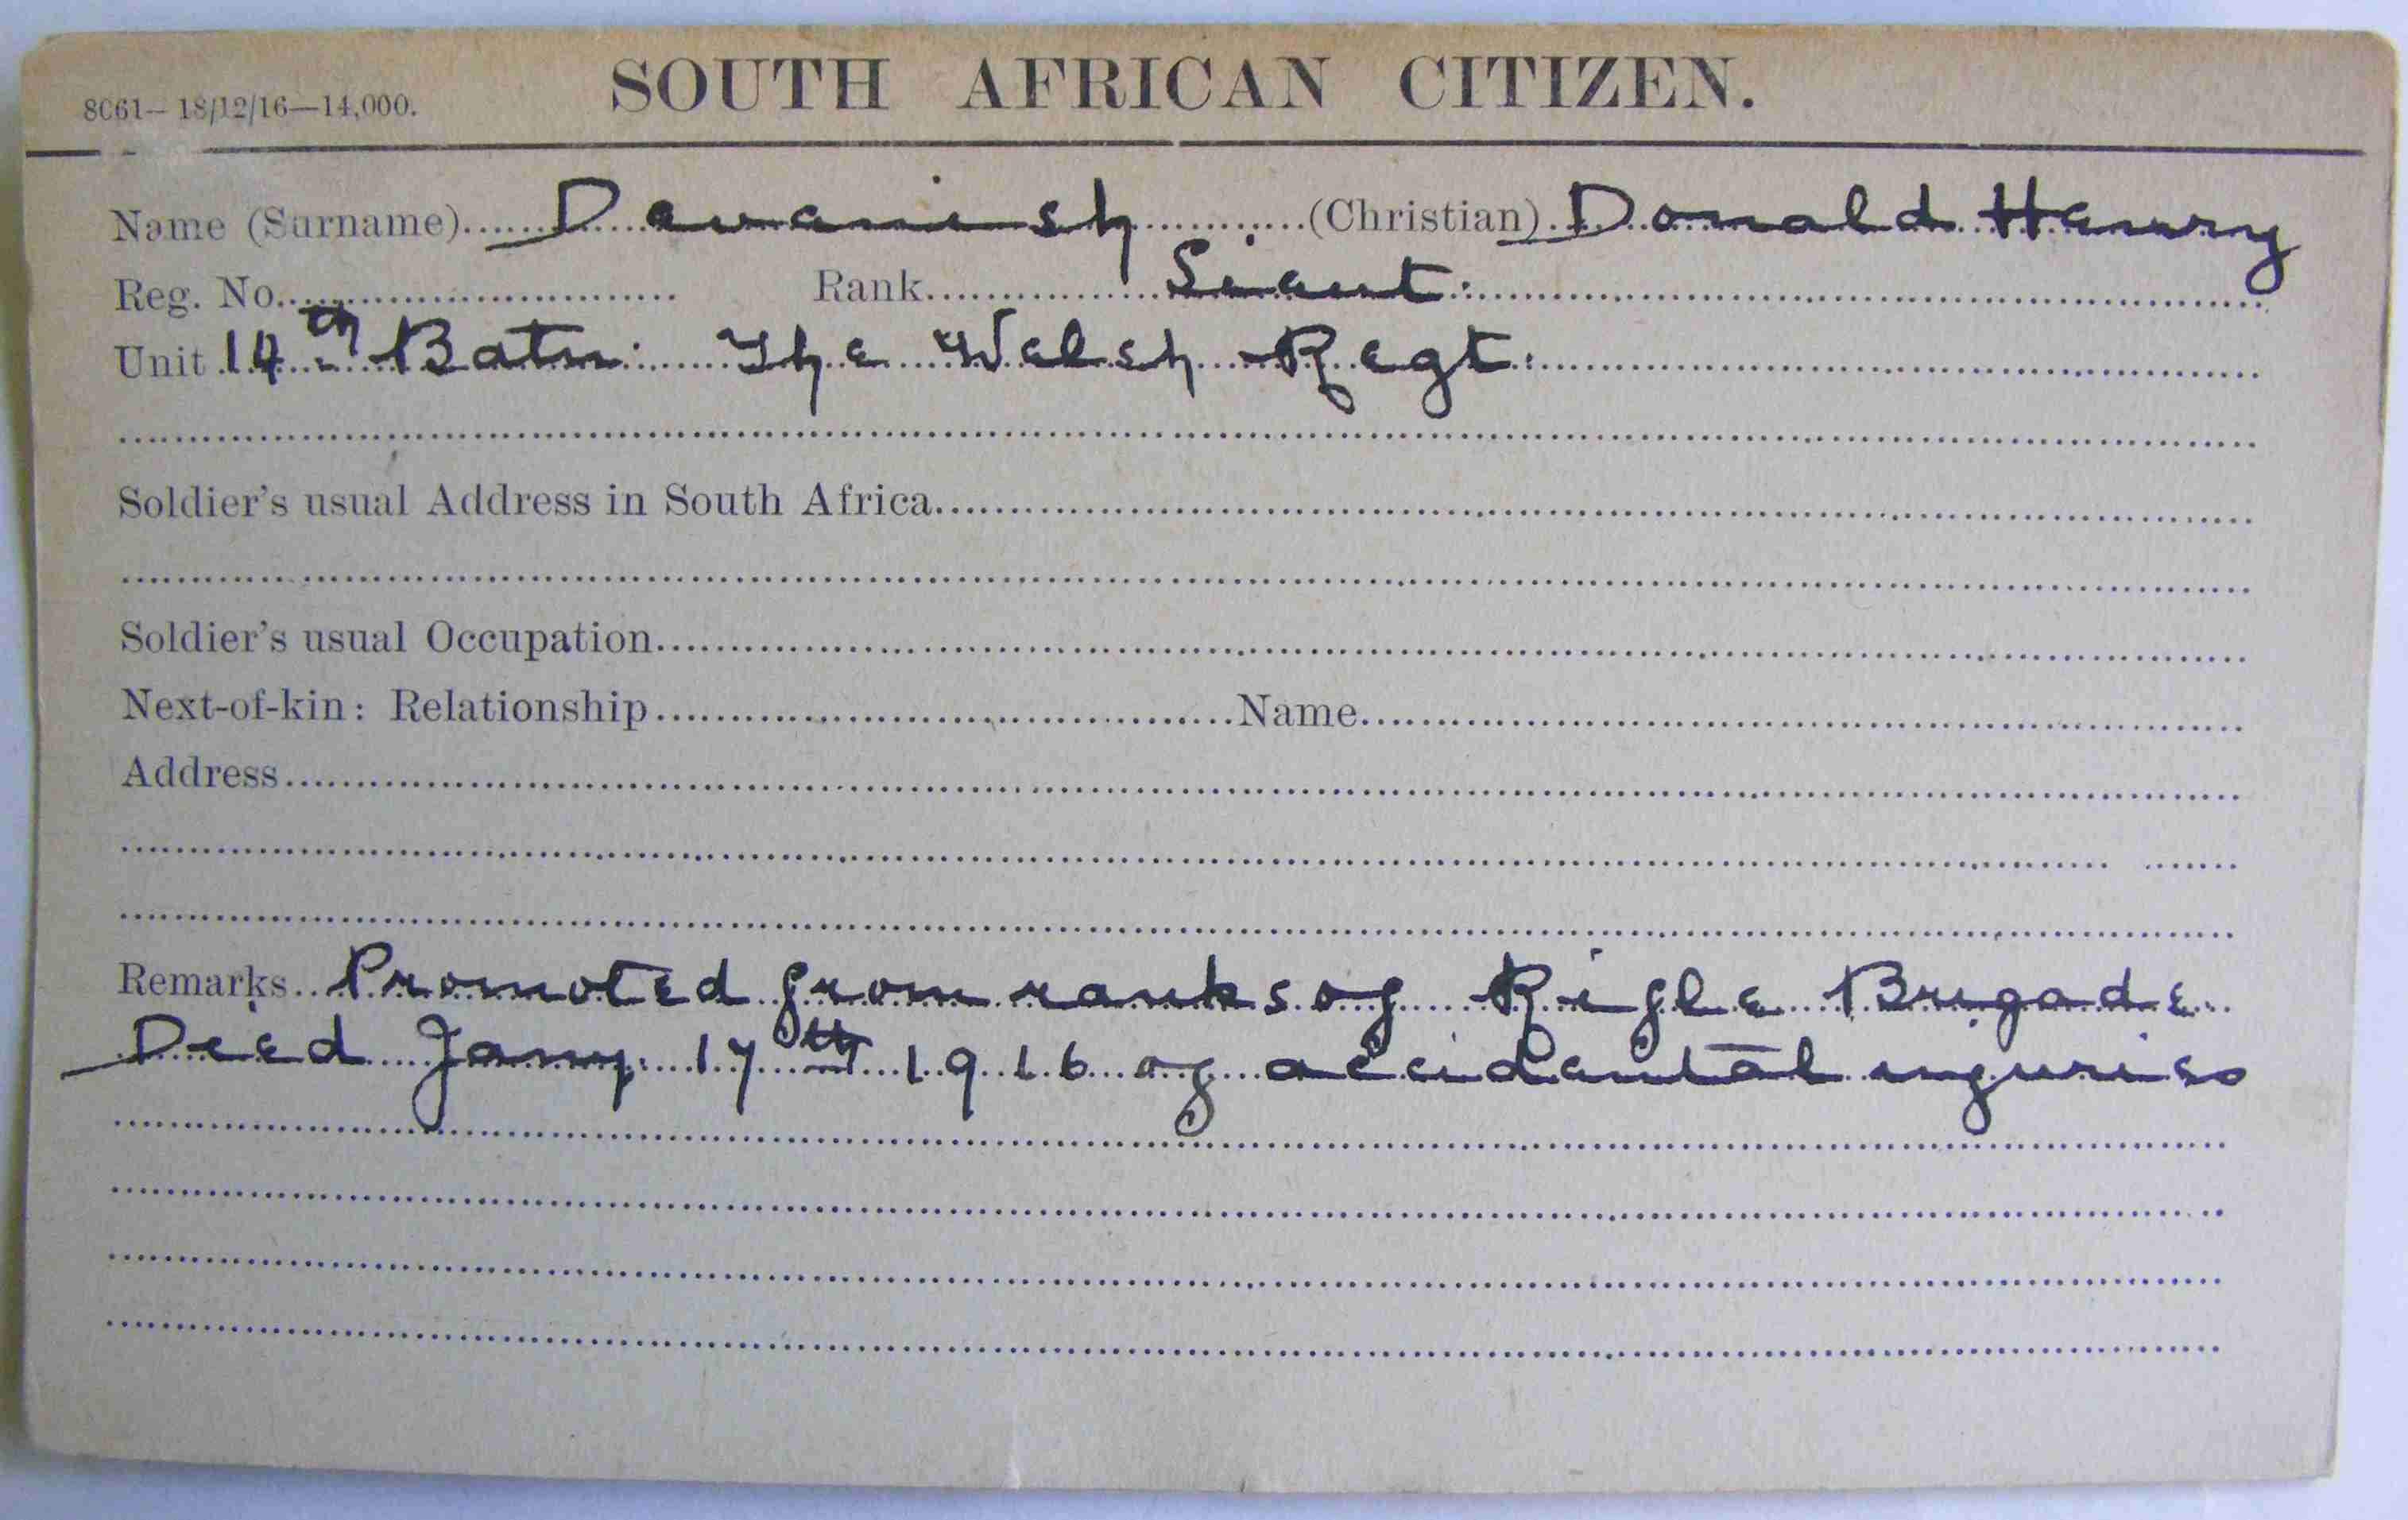 8C61– 18/12/16—14,000. SOUTH AFRICAN CITIZEN.
Name (Surname) Devenish (Christian) Donald Henry
Reg. No. Rank Lieut:
Unit 14th Batn: The Welsh Regt:
Soldier's usual Address in South Africa
Soldier's usual Occupation
Next-of-kin: Relationship Name
Address
Remarks Promoted from ranks of Rifle Brigade.
Died Jany: 17th 1916 of accidental injuries